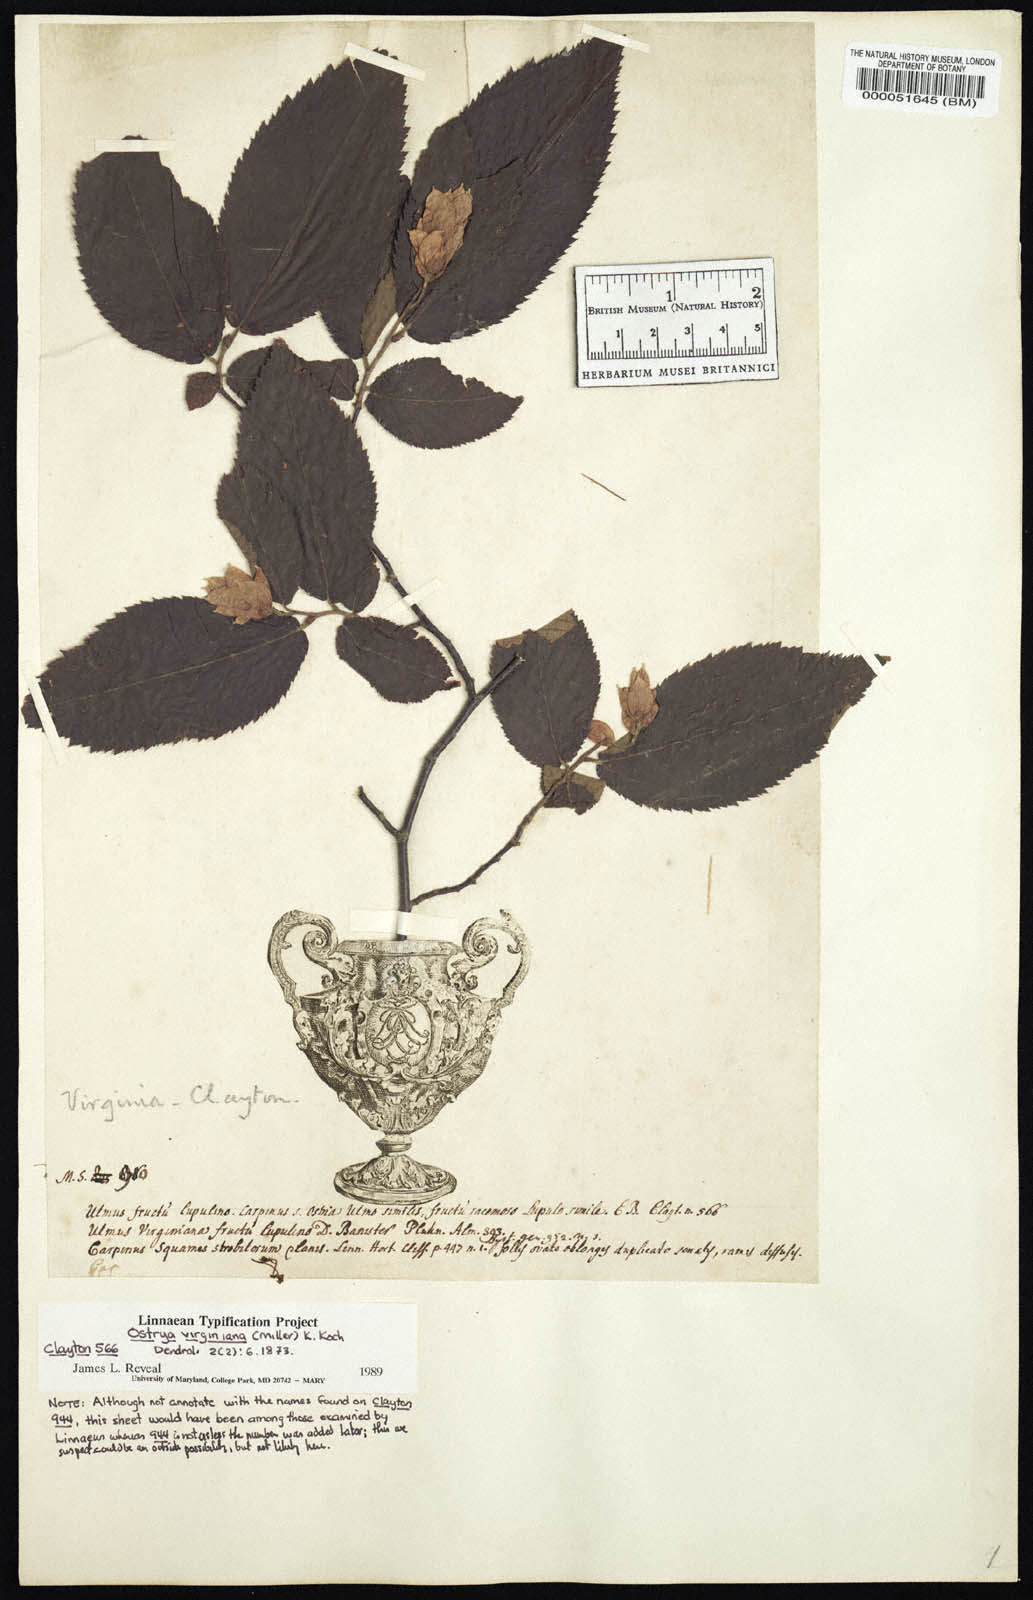 THE NATURAL HISTORY MUSEUM, LONDON
DEPARTMENT OF BOTANY
000051645 (BM)
1 2
BRITISH MUSEUM (NATURAL HISTORY)
1 2 3 4 5
HERBARIUM MUSEI BRITANNICI
Virginia - Clayton.
M.S.
Ulmus fructû Lupulino. Carpinus s. Ostria Ulmo similis, fructû racemoso Lupulo simile. C.B. Clayt. n. 566
Ulmus Virginiana fructû Lupulino D. Banister Plukn. Alm. 393.
Carpinus Squamis strobilorum Linn. Hort. Cliff. p. 447 n. foliis ovato oblongis duplicato serratis, ramis diffusis.
Car
Linnaean Typification Project
Ostrya virginiana (Miller) K. Koch
Clayton 566 Dendrol. 2(2): 6. 1873.
James L. Reveal 1989
University of Maryland, College Park, MD 20742 – MARY
NOTE: Although not annotate with the names found on Clayton
944, this sheet would have been among those examined by
Linnaeus whereas 944 is not unless the number was added later; this we
suspect could be an outside possibility, but not likely here.
1